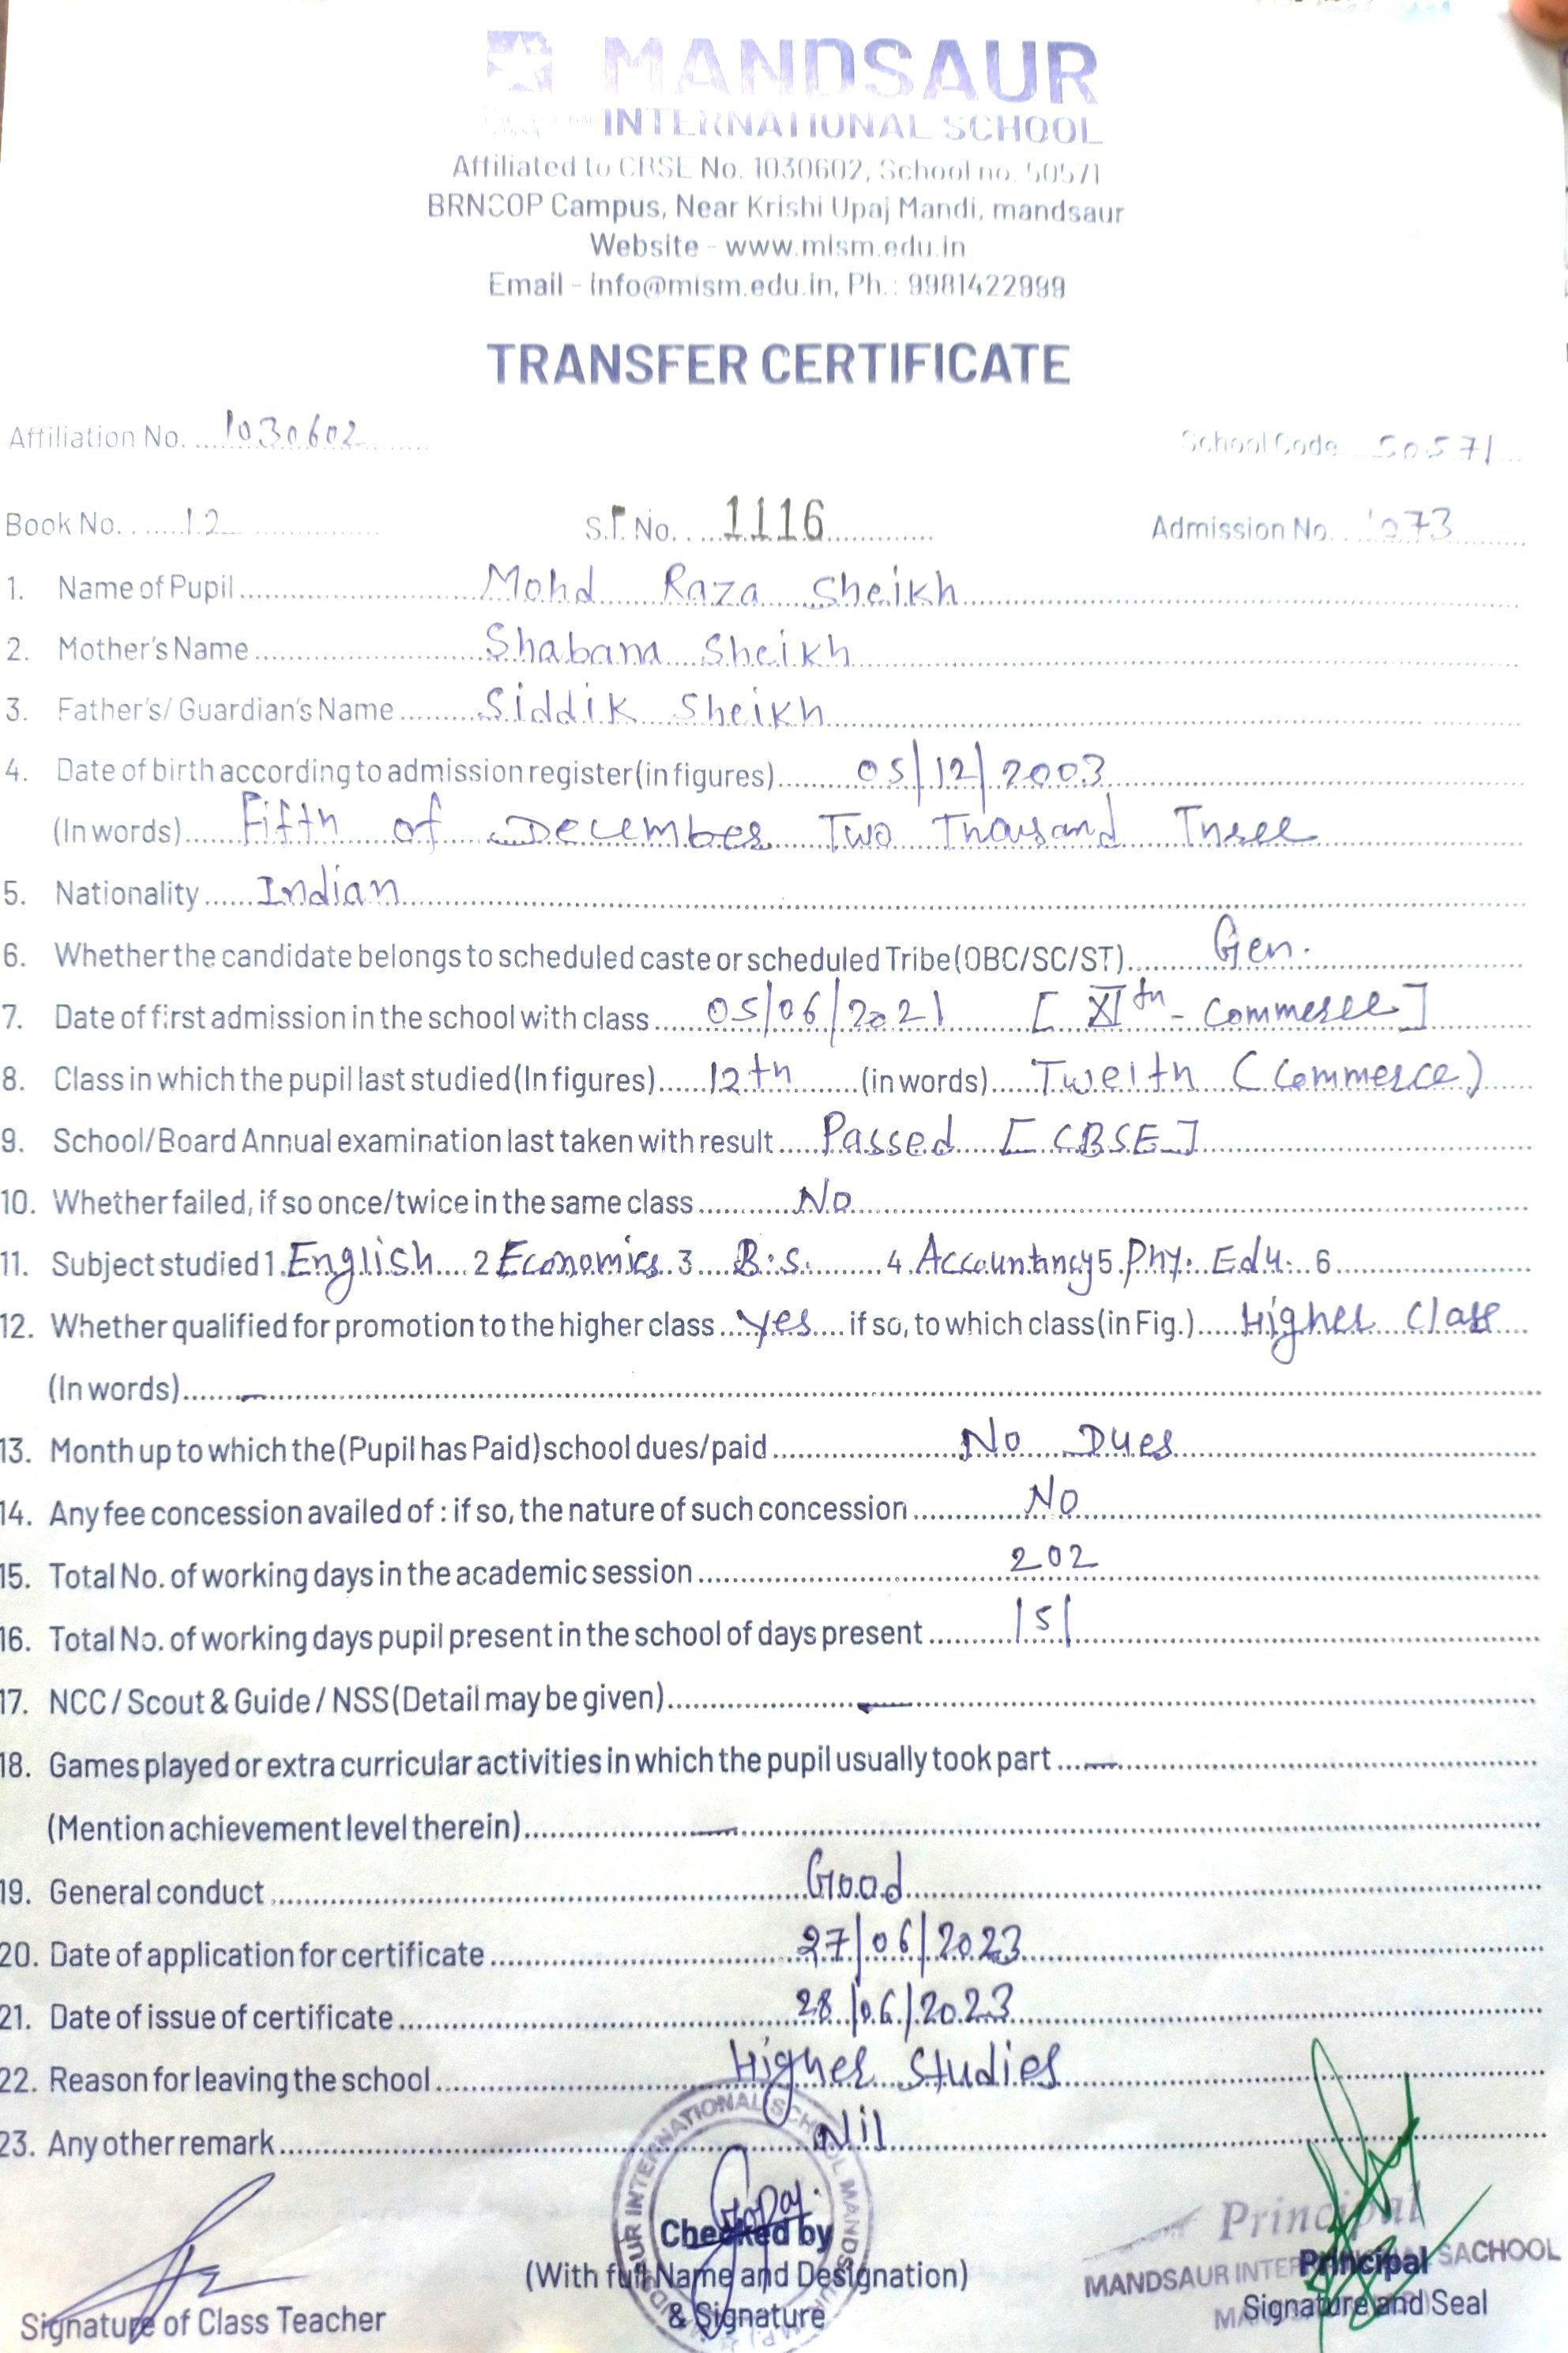 MANDSAUR
INTERNATIONAL SCHOOL
Affiliated to CBSE No. 1030602, School no. 50571
BRNCOP Campus, Near Krishi Upaj Mandi, mandsaur
Website - www.mism.edu.in
Email - info@mism.edu.in, Ph.: 9981422999
TRANSFER CERTIFICATE
Affiliation No. 1030602 School Code 50571
Book No. 12 S.r. No. 1116 Admission No. 1073
1. Name of Pupil Mohd Raza Sheikh
2. Mother's Name Shabana Sheikh
3. Father's/ Guardian's Name Siddik Sheikh
4. Date of birth according to admission register (in figures) 05/12/2003
(In words) Fifth of December Two Thousand Three
5. Nationality Indian
6. Whether the candidate belongs to scheduled caste or scheduled Tribe (OBC/SC/ST) Gen.
7. Date of first admission in the school with class 05/06/2021 [XIth - Commerce]
8. Class in which the pupil last studied (In figures) 12th (in words) Twelth (Commerce)
9. School/Board Annual examination last taken with result Passed [CBSE]
10. Whether failed, if so once/twice in the same class No
11. Subject studied 1. English 2 Economics 3 B.S. 4 Accountancy 5 Phy. Edu. 6
12. Whether qualified for promotion to the higher class Yes if so, to which class (in Fig.) Higher Class
(In words) -
13. Month up to which the (Pupil has Paid) school dues/paid No Dues
14. Any fee concession availed of : if so, the nature of such concession No
15. Total No. of working days in the academic session 202
16. Total No. of working days pupil present in the school of days present 151
17. NCC / Scout & Guide / NSS (Detail may be given) -
18. Games played or extra curricular activities in which the pupil usually took part -
(Mention achievement level therein) -
19. General conduct Good
20. Date of application for certificate 27/06/2023
21. Date of issue of certificate 28/06/2023
22. Reason for leaving the school Higher Studies
23. Any other remark Nil
Principal
MANDSAUR INTERNATIONAL SACHOOL
Checked by Principal
(With full Name and Designation)
Signature of Class Teacher & Signature Signature and Seal